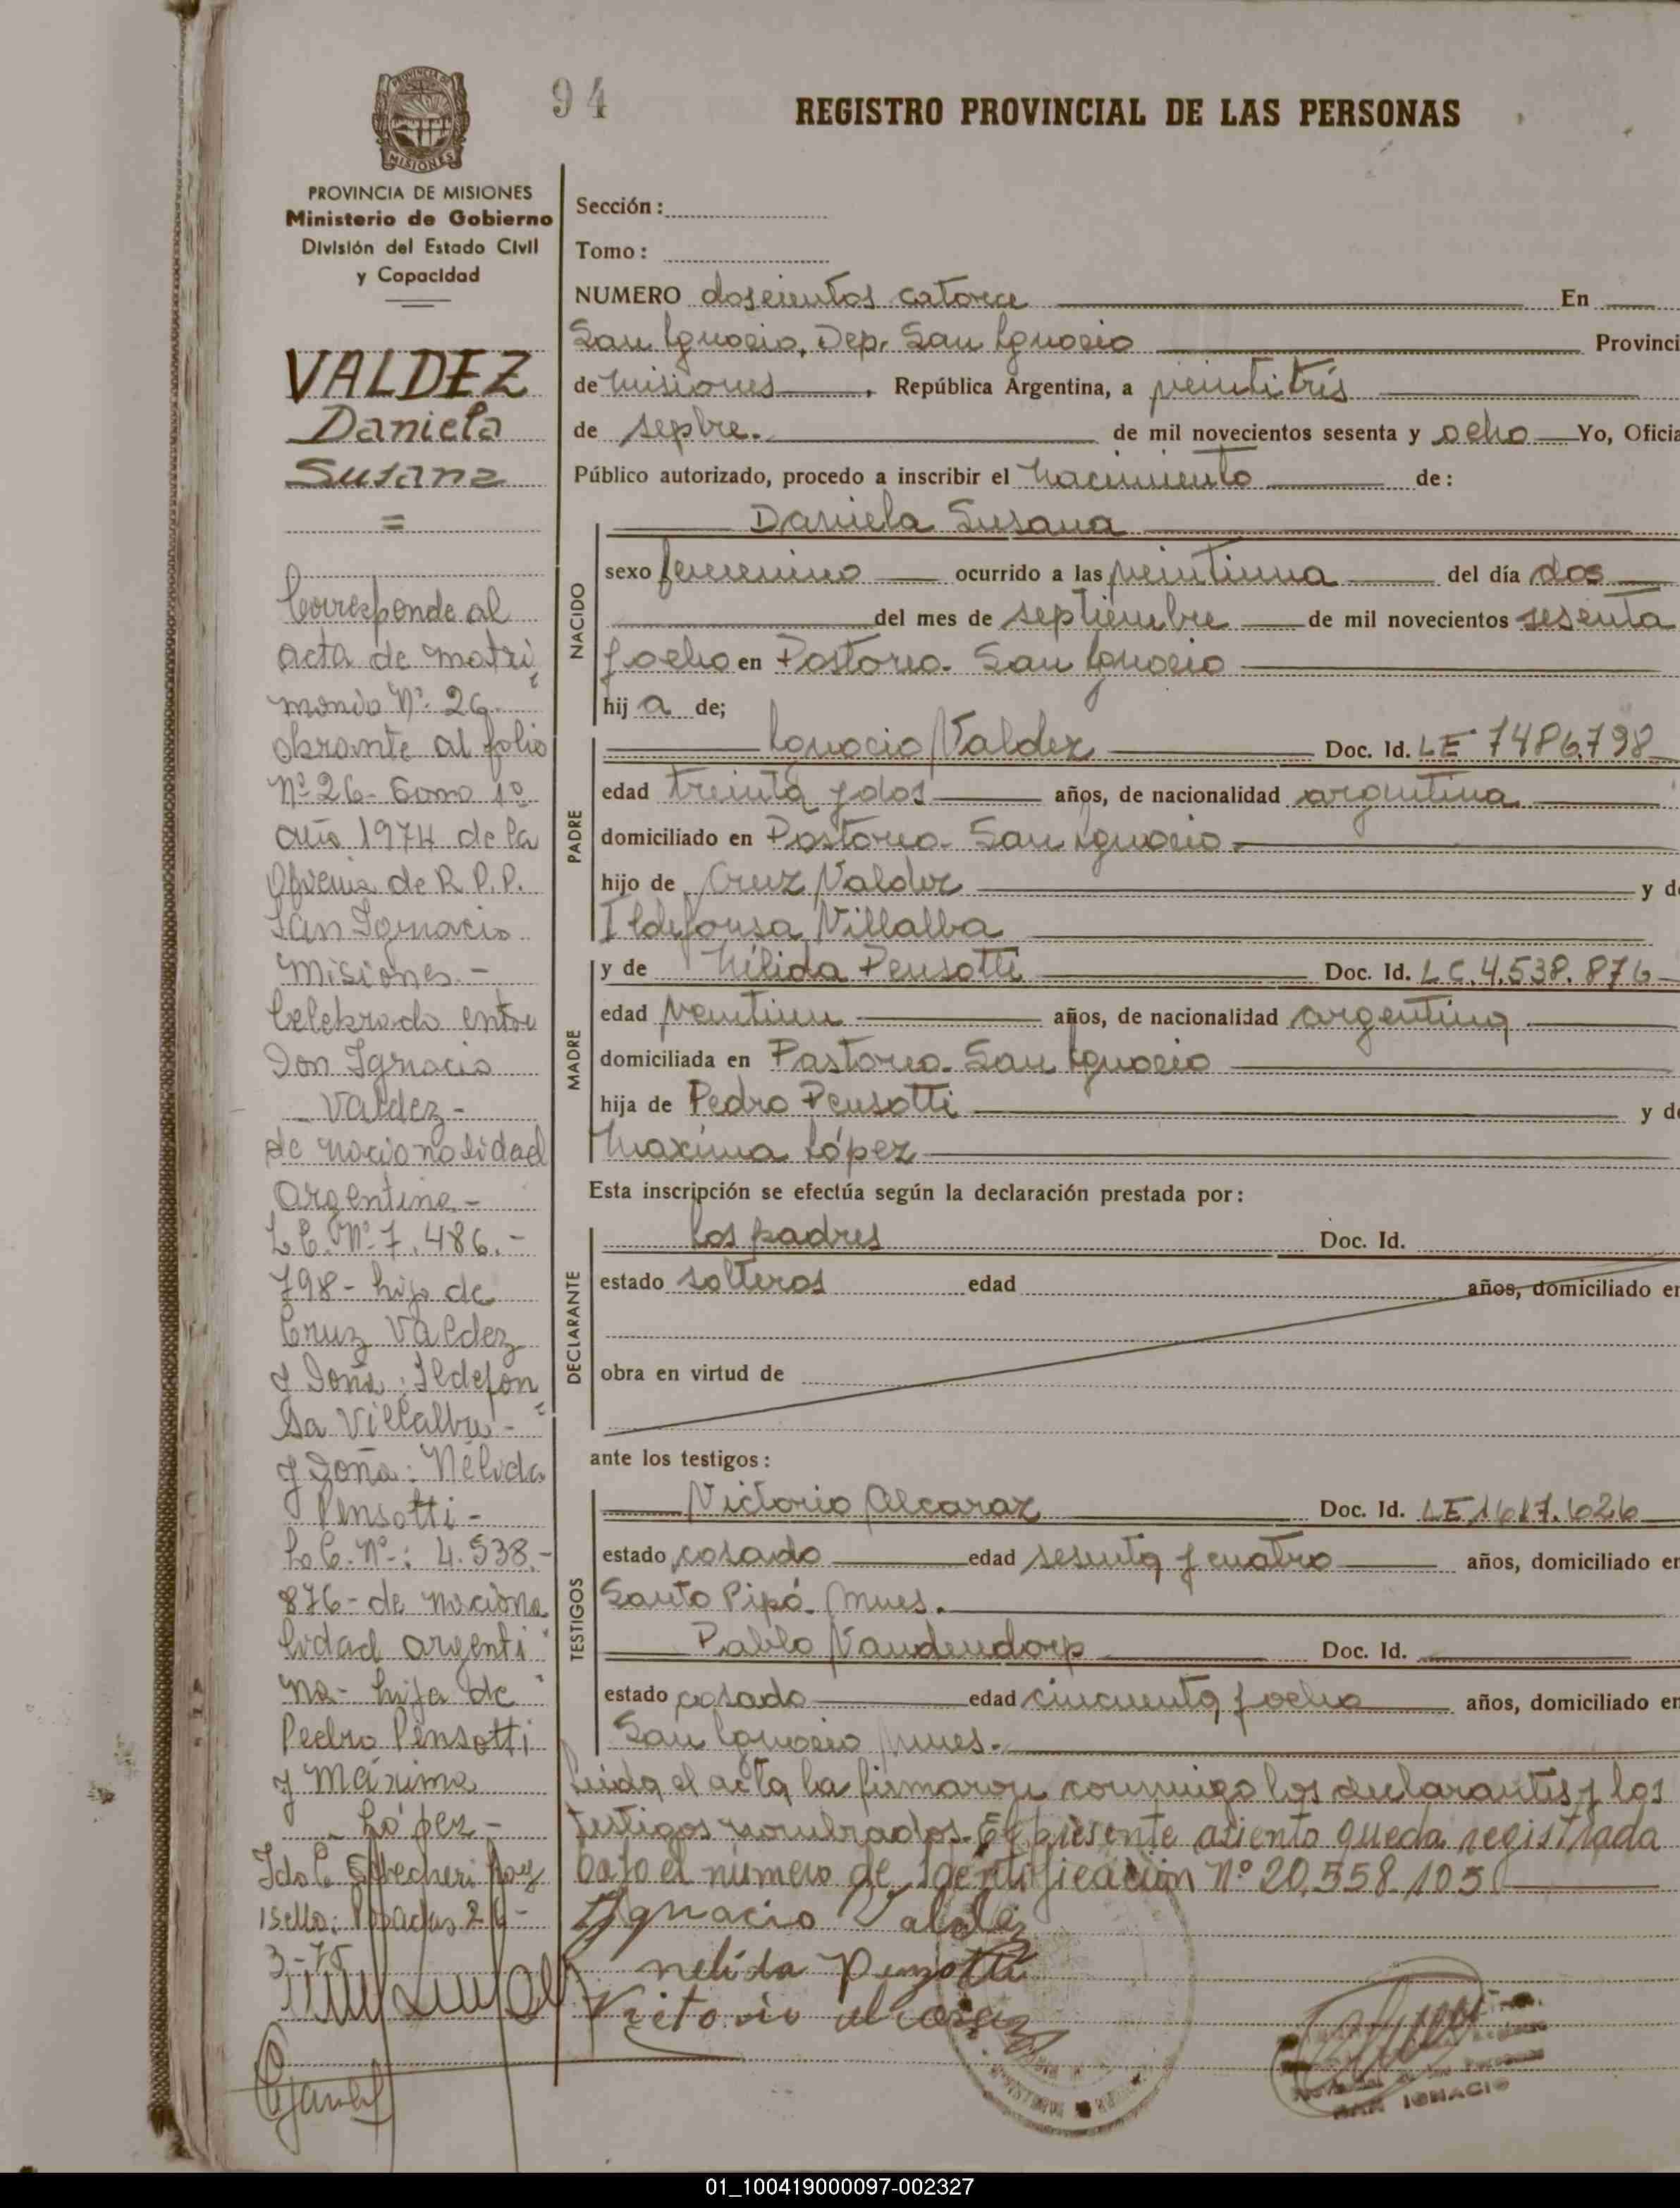 94
REGISTRO PROVINCIAL DE LAS PERSONAS
PROVINCIA DE MISIONES
Ministerio de Gobierno
División del Estado Civil
y Capacidad
VALDEZ
Daniela
Susana
=
Corresponde al
acta de matri
monio Nº 26.
obrante al folio
Nº 26- Tomo 1º
año 1974 de la
Oficina de R.P.P.
San Ignacio
Misiones.-
Celebrado entre
Don Ignacio
Valdez-
de nacionalidad
Argentina-
L.E. Nº 7.486.-
798- hijo de
Cruz Valdez
y Doña: Ildefon
sa Villalba-
y Doña: Nélida
Pensotti-
L.C. Nº: 4.538.-
876- de naciona
lidad argenti
na- hija de
Pedro Pensotti
y Máxima
López-
Posadas 26-
3-75
Sección:
Tomo:
NUMERO doscientos catorce En
San Ignacio, Dep. San Ignacio Provinci
de Misiones, República Argentina, a veintitrés
de sepbre. de mil novecientos sesenta y ocho Yo, Oficia
Público autorizado, procedo a inscribir el Nacimiento de:
NACIDO
Daniela Susana
sexo femenino ocurrido a las veintiuna del día dos
del mes de septiembre de mil novecientos sesenta
y ocho en Pastoreo. San Ignacio
hij a de;
PADRE
Ignacio Valdez Doc. Id. LE 7486798
edad treinta y dos años, de nacionalidad argentina
domiciliado en Pastoreo. San Ignacio.
hijo de Cruz Valdez y de
Ildefonsa Villalba
MADRE
y de Nélida Pensotti Doc. Id. LC. 4.538.876
edad veintiun años, de nacionalidad argentina
domiciliada en Pastoreo. San Ignacio
hija de Pedro Pensotti y de
Maxima López
Esta inscripción se efectúa según la declaración prestada por:
DECLARANTE
los padres Doc. Id.
estado solteros edad años, domiciliado en
obra en virtud de
ante los testigos:
TESTIGOS
Victorio Alcaraz Doc. Id. LE 1617.626
estado casado edad sesenta y cuatro años, domiciliado en
Santo Pipó. Mnes.
Pablo Vandendorp Doc. Id.
estado casado edad cincuenta y ocho años, domiciliado en
San Ignacio Mnes.
Leida el acta la firmaron conmigo los declarantes y los
testigos nombrados. El presente asiento queda registrada
bajo el número de Identificación Nº 20.558.105
Ignacio Valdez
nelida Penzotti
Victorio alcaraz
SAN IGNACIO
01_100419000097-002327